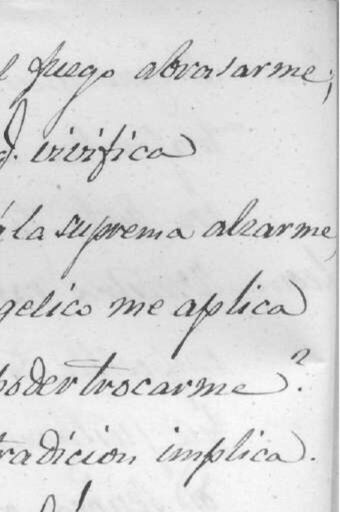 l fuego abrasarme;
d. vivifica
á la suprema alzarme,
gelico me aplica
poder trocarme?
tradicion implica.